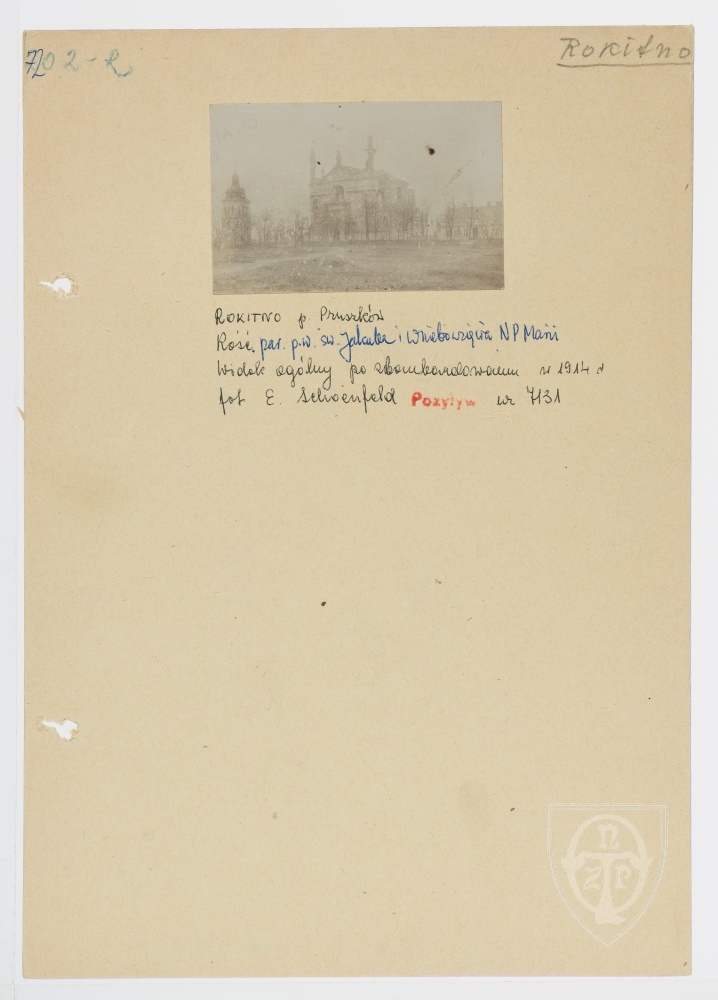 7202-R
Rokitno
ROKITNO p. Pruszków
Kość. par. p.w. św. Jakuba i Wniebowzięcia NP Marii
Widok ogólny po zbombardowaniu w 1914 r
fot E. Schoenfeld Pozytyw nr 7131
TONZP